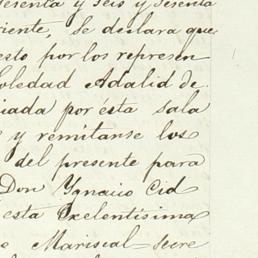 sesenta y seis y sesenta
riente, se declara que
esto por los represen
Soledad Adalid de
iada por ésta sala
e y remitanse los
del presente para
Don Ygnacio Cid
esta Exelentísima
e Mariscal=Secre